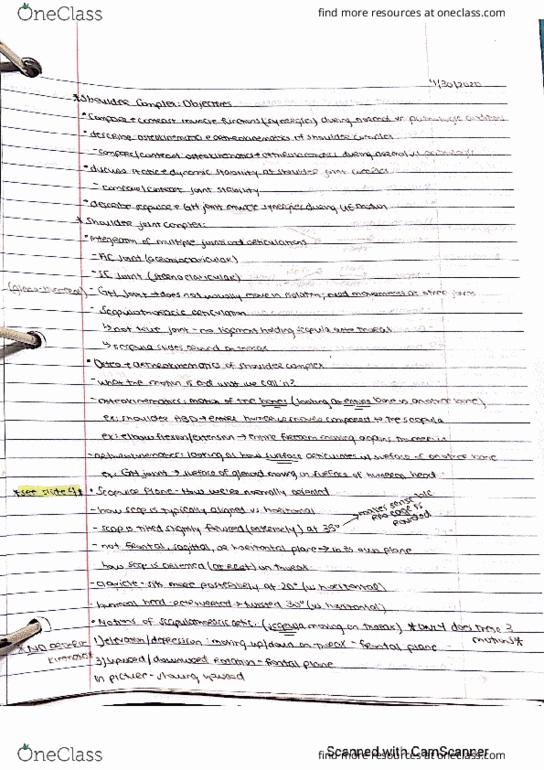 OneClass
find more resources at oneclass.com
4/30/2020
*Shoulder Complex: Objectives
• Compare + contrast muscle functions (synergies) during normal vs. pathologic conditions
• describe osteokinematic + arthrokinematics of shoulder complex
- compare/contrast osteokinematics + arthrokinematics during normal vs.
• discuss static + dynamic stability at shoulder joint complex
- compare/contrast joint stability
• describe scapular + GH joint muscle synergies during UE motion
* Shoulder joint complex:
• integration of multiple joints and articulations
- AC joint (acromioclavicular)
- SC joint (sternoclavicular)
(gleno-humeral) - GH joint → does not usually move in isolation; need movements at other joints
- Scapulothoracic articulation
↳ not true joint - no ligament holding scapula onto thorax
↳ scapula slides around on thorax
• Osteo + arthrokinematics of shoulder complex
- what the motion is and what we call it?
- osteokinematics: motion of the bones (looking at entire bone vs another bone)
ex: shoulder ABD → entire humerus moves compared to the scapula
ex: elbow flexion/extension → entire forearm moving against humerus
- arthrokinematics: looking at how surface articulates in surface of another bone
ex: GH joint → surface of glenoid moving on surface of humeral head
*see slide 9* • Scapular Plane - How we're normally oriented
- how scap is typically aligned vs horizontal
- scap is tilted slightly forward (anteriorly) at 35° → makes sense b/c rib cage is rounded
- not frontal, sagittal, or horizontal plane → in its own plane
how scap is oriented (at rest) on thorax
- clavicle - sits more posteriorly at 20° (vs horizontal)
- humeral head - retroverted → twisted 30° (vs horizontal)
• Motions of scapulothoracic artic. (scapula moving on thorax) *ONLY does these 3 motions*
1) elevation/depression: moving up/down on thorax - frontal plane
2) upward/downward rotation - frontal plane
in picture - showing upward
OneClass
Scanned with CamScanner
find more resources at oneclass.com